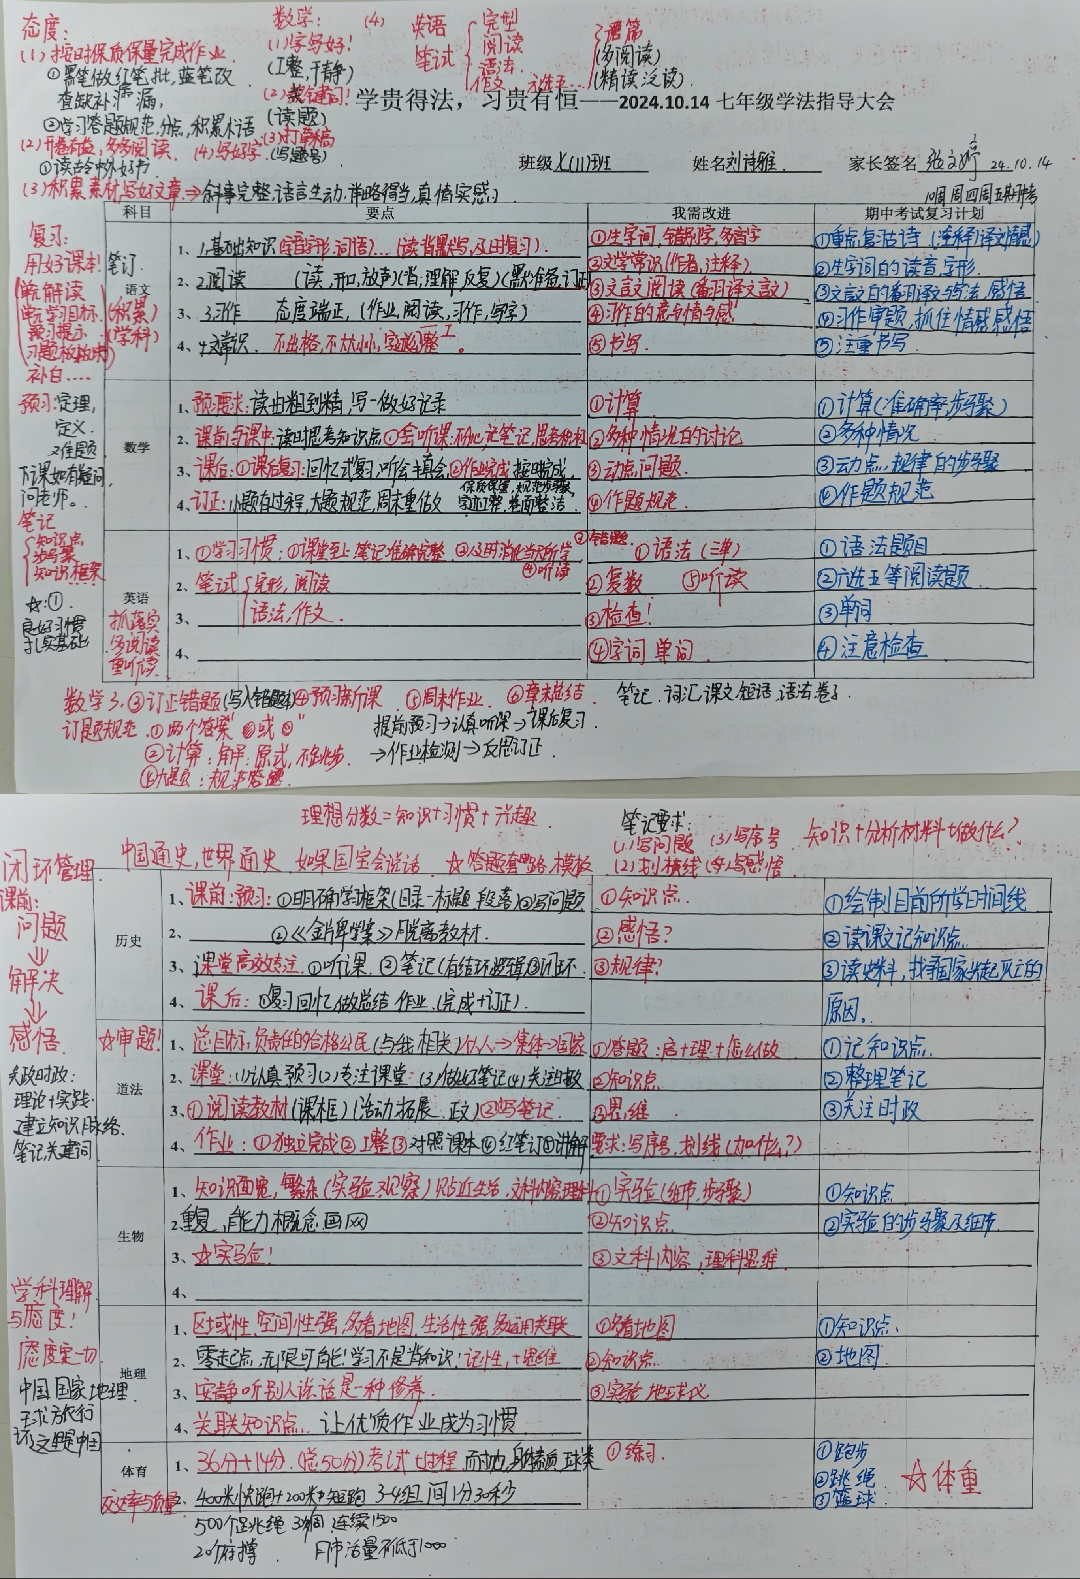 态度：
(1) 按时保质保量完成作业
①黑笔做,红笔批,蓝笔改
查缺补漏,
②学习答题规范,分点,积累术语
(2) 开卷有益,多多阅读. (4) 写好字.
①读古今中外好书
(3) 积累素材,写好文章→叙事完整,语言生动.详略得当,真情实感.
数学：
(1) 字写好！
(工整,干净)
(读题)
(3) 打草稿
(写题号)
(4) 英语
笔试
完型
阅读
语法
作文
(多阅读)
(精读泛读)
学贵得法，习贵有恒——2024.10.14 七年级学法指导大会
班级 七(11)班 姓名 刘诗雅 家长签名 24.10.14
科目 要点 我需改进 期中考试复习计划
复习：
用好课本！
单元解读
单元学习目标
补白....
笔订
(积累)
(学科)
语文
1、1.基础知识
2、2.阅读 (读,开口,放声)(背,理解,反复)
3、3.习作 态度端正,(作业,阅读,习作,写字)
4、
①生字词,错别字,多音字
②文学常识(作者,注释)
③文言文阅读(翻译文言文)
④习作的意与情与感
⑤书写.
②生字词的读音,字形.
④习作审题,抓住情感感悟
⑤注重书写
预习:定理,
定义.
难题
下课如有疑问
问老师。
笔记
知识点
步骤
知识框架
数学
1、预习要求:读由粗到精,写一做好记录
2、课前与课中:读时思考知识点
3、课后:①课后复习:回忆式复习
4、订正:小题有过程,大题规范,周末重做
①计算
②多种情况的讨论
③动点问题.
④作题规范
①计算(准确率,步骤)
②多种情况
③动点,规律的步骤
④作题规范
☆:①
良好习惯
扎实基础
英语
抓落实
多阅读
重听读
1、①学习习惯:①课堂至上
④听读
2、笔试 完形,阅读
3、语法,作文
4、
①语法(三单)
②复数 ⑤听读
③检查！
④字词 单词
①语法题目
②六选五等阅读题
③单词
④注意检查
数学3.③订正错题(写入错题本)④预习新课 ⑤周末作业. ⑥章末总结. 笔记.词汇.课文.短语.语法.卷子
订题规范.①两个答案
提前预习→认真听课→课后复习.
②计算:解:原式,不跳步.
→作业检测→反思订正
理想分数=知识+习惯+兴趣.
笔记要求:
(1) 写问题 (3) 写序号
(2) 划横线 (4) 写感悟
知识+分析材料+做什么?
闭环管理
中国通史,世界通史 如果国宝会说话 ☆答题套路,模板
课前:
问题
解决
感悟
历史
1、课前:预习:①明确学框架(目录-标题 段落)②写问题
2、
脱离教材.
3、课堂高效专注.①听课.②笔记
4、课后:①复习回忆,做总结.作业.(完成+订正).
①知识点.
②感悟?
③规律?
①绘制目前所学时间线
②读课文记知识点.
原因。
☆审题!
道法
关政时政:
理论+实践.
建立知识脉络.
笔记关键词
1、总目标,负责任的合格公民(与我相关)个人→集体→国家
2、课堂:(1)认真预习(2)专注课堂:(3)做好笔记(4)关注时政
3、①阅读教材(课框)(活动拓展 正文)②写笔记.
4、作业:①独立完成②工整③对照课本④红笔订⑤讲解
②知识点
③思维
要求:写序号,划线(加什么?)
①记知识点.
②整理笔记
③关注时政
生物
2、重复,能力概念画网
3、☆实验!
4、
①实验(细节,步骤)
②知识点.
③文科内容,理科思维
①知识点
②实验的步骤及细节
学科理解
与态度!
态度定一切.
中国国家地理
环球旅行
这里是中国
地理
1、区域性,空间性强,多看地图,生活性强,多运用关联
2、零起点,无限可能!学习不是背知识!记性,+思维
3、安静听别人说话是一种修养.
4、关联知识点. 让优质作业成为习惯
①多看地图
②知识点.
③实验地球仪
①知识点.
②地图
体育
效率与质量
1、36分+14分.(总50分)
2、400米快跑+200米短跑 3-4组 间1分30秒
①练习.
①跑步
②跳绳
③篮球
☆体重